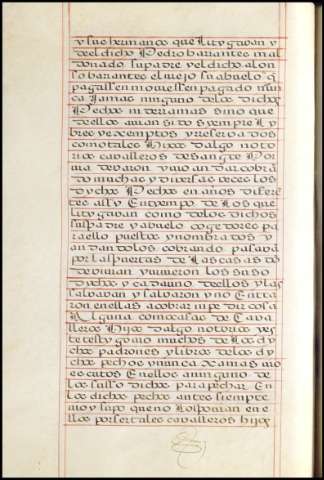 y sus hermanos que Litygavan y
de el dicho Pedro barantes mal
donado su padre y el dicho alon
so barantes el viejo su abuelo q̃
pagasen ni oviessen pagado nun
ca Jamas ninguno delos dichos
Pechos ni derramas sino que
dellos avian sido syempre Ly
bres y exemptos y reservados
como tales Hijos dalgo noto
rios cavalleros de sangre Por
via de varon y vio andar cobrã
do muchas y diversas veces los
dychos Pechos en años difere
tes assy En tyempo de Los que
litygavan como de los dichos
su padre y abuelo cogedores pa
ra ello puestos y nombrados y
andandolos cobrando pasavã
por las puertas de Las casas dõ
de vivian y vivieron los suso
dychos y cada uno dellos y las
salvavan y salvaron y no Entra
ron en ellas a cobrar ni pedir cosa
Alguna como casas de Cava
lleros Hijos dalgo notorios y es
te testygo vio muchos de Los dy
chos padrones y lybros de los dy
chos pechos y nunca xamas vio
escritos En ellos a ninguno de
los susso dichos para pechar En
los dichos pechos antes siempre
vio y supo que no Lo ponian en e
llos por ser tales cavalleros hijos